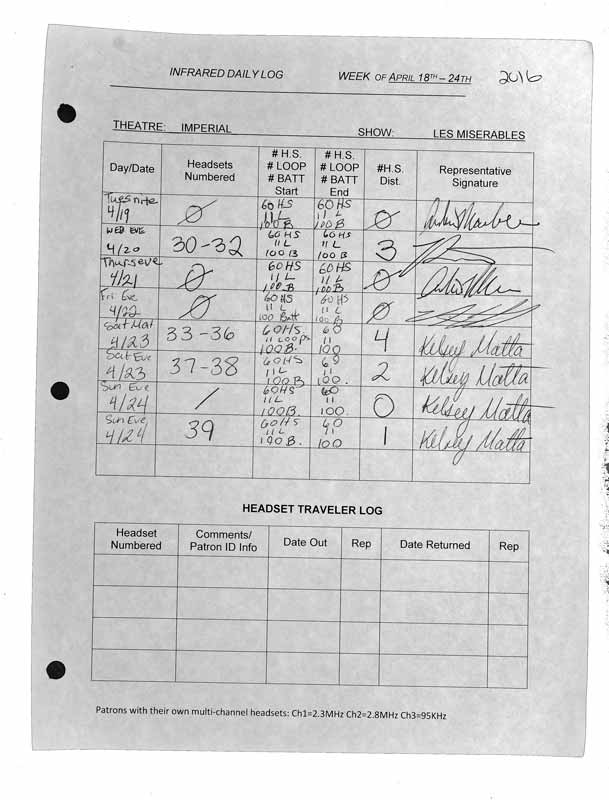 INFRARED DAILY LOG WEEK OF APRIL 18TH – 24TH 2016
THEATRE: IMPERIAL SHOW: LES MISERABLES
Day/Date Headsets Numbered # H.S. # LOOP # BATT Start # H.S. # LOOP # BATT End #H.S. Dist. Representative Signature
Tues nite 4/19 Ø 60 HS 11 L 100 B 60 HS 11 L 100 B Ø
WED EVE 4/20 30-32 60 HS 11 L 100 B 60 HS 11 L 100 B 3
Thurs eve 4/21 Ø 60 HS 11 L 100 B 60 HS 11 L 100 B Ø
Fri Eve 4/22 Ø 60 HS 11 L 100 Batt 60 HS 11 L 100 B Ø
Sat Mat 4/23 33-36 60 HS 11 Loops 100 B. 60 11 100 4 Kelsey Matta
Sat Eve 4/23 37-38 60 HS 11 L 100 B 60 11 100. 2 Kelsey Matta
Sun Eve 4/24 / 60 HS 11 L 100 B. 60 11 100. 0 Kelsey Matta
Sun Eve 4/24 39 60 HS 11 L 100 B. 60 11 100 1 Kelsey Matta
HEADSET TRAVELER LOG
Headset Numbered Comments/ Patron ID Info Date Out Rep Date Returned Rep
Patrons with their own multi-channel headsets: Ch1=2.3MHz Ch2=2.8MHz Ch3=95KHz